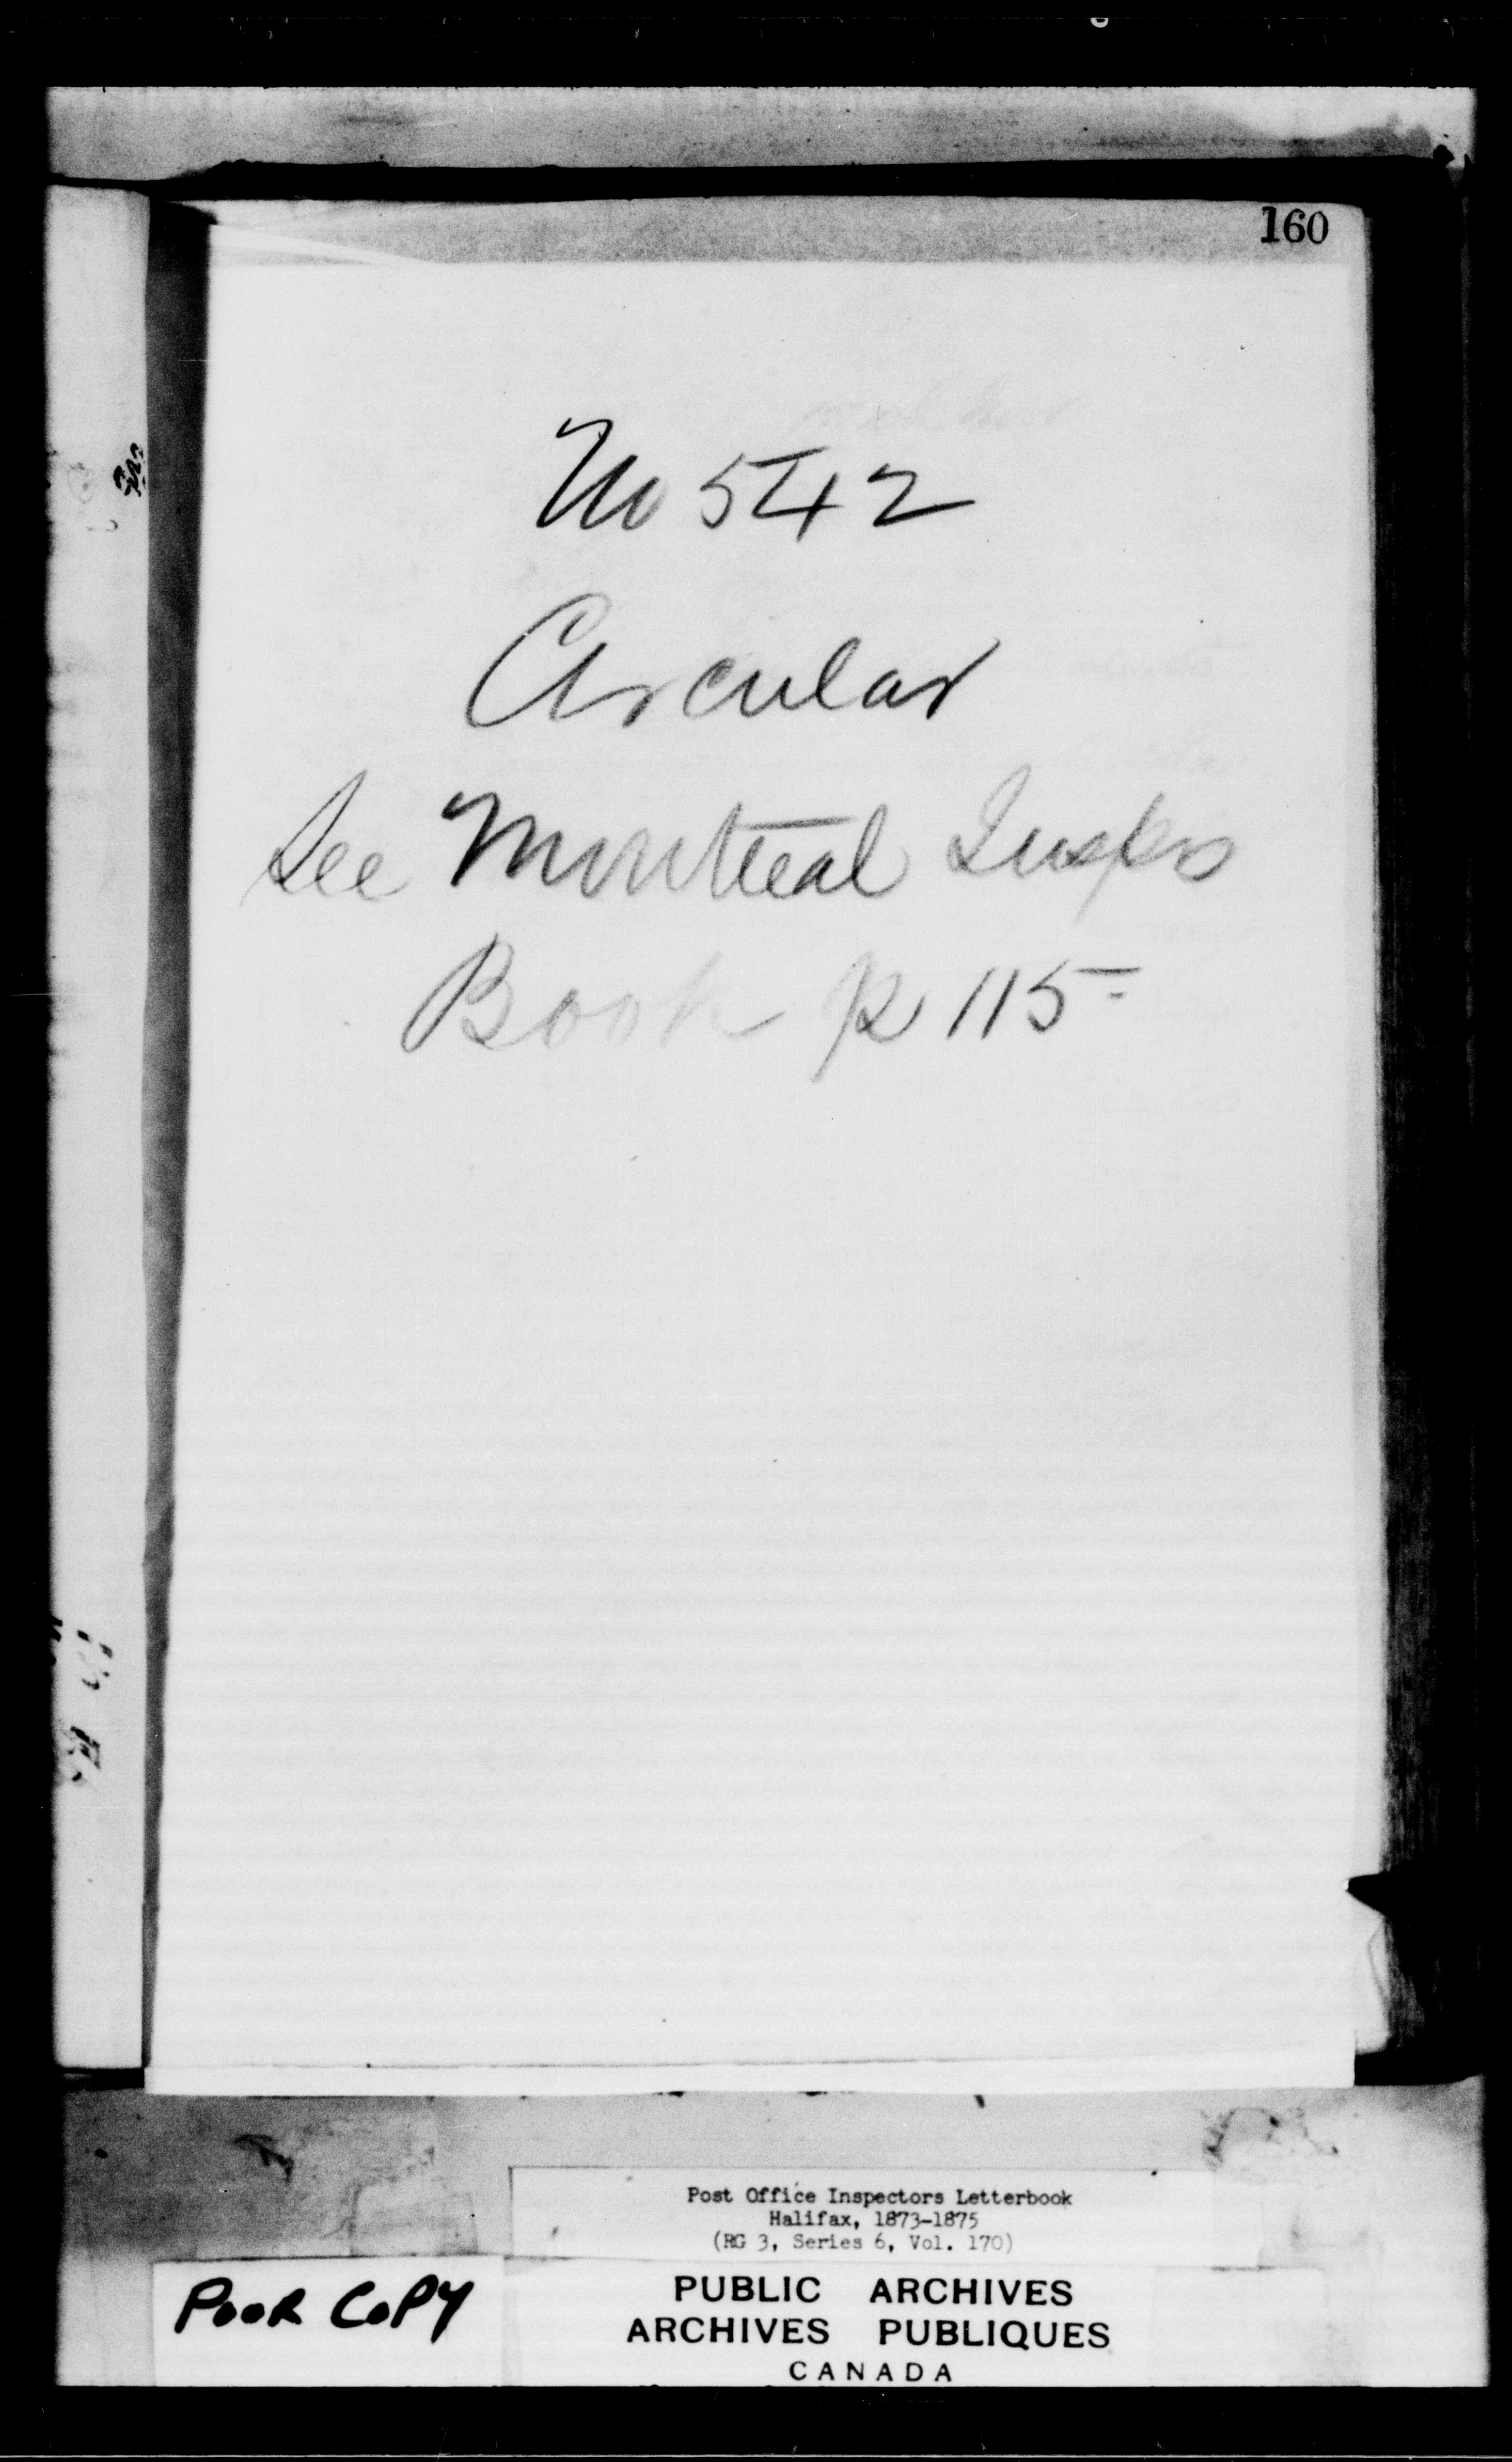 160
No 542
Circular
See Montreal Insprs
Book p 115
Post Office Inspectors Letterbook
Halifax, 1873-1875
(RG 3, Series 6, Vol. 170)
POOR COPY
PUBLIC ARCHIVES
ARCHIVES PUBLIQUES
CANADA